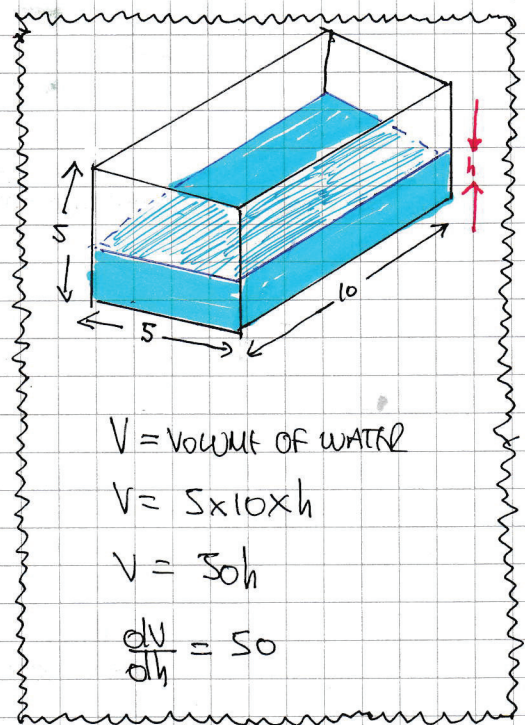 h
5
5
10
V = VOLUME OF WATER
V = 5x10xh
V = 50h
dV/dh = 50